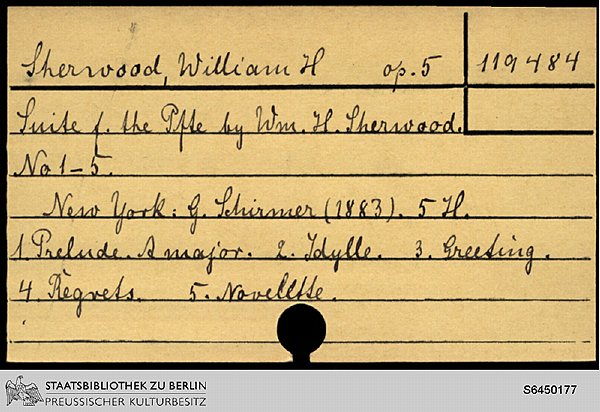 Sherwood, William H op. 5 119484
Suite f. the Pfte by Wm. H. Sherwood.
No 1-5.
New York: G. Schirmer (1883). 5 H.
1. Prelude. A major. 2. Idylle. 3. Greeting.
4. Regrets. 5. Novelltte.
STAATSBIBLIOTHEK ZU BERLIN
PREUSSISCHER KULTURBESITZ
S6450177